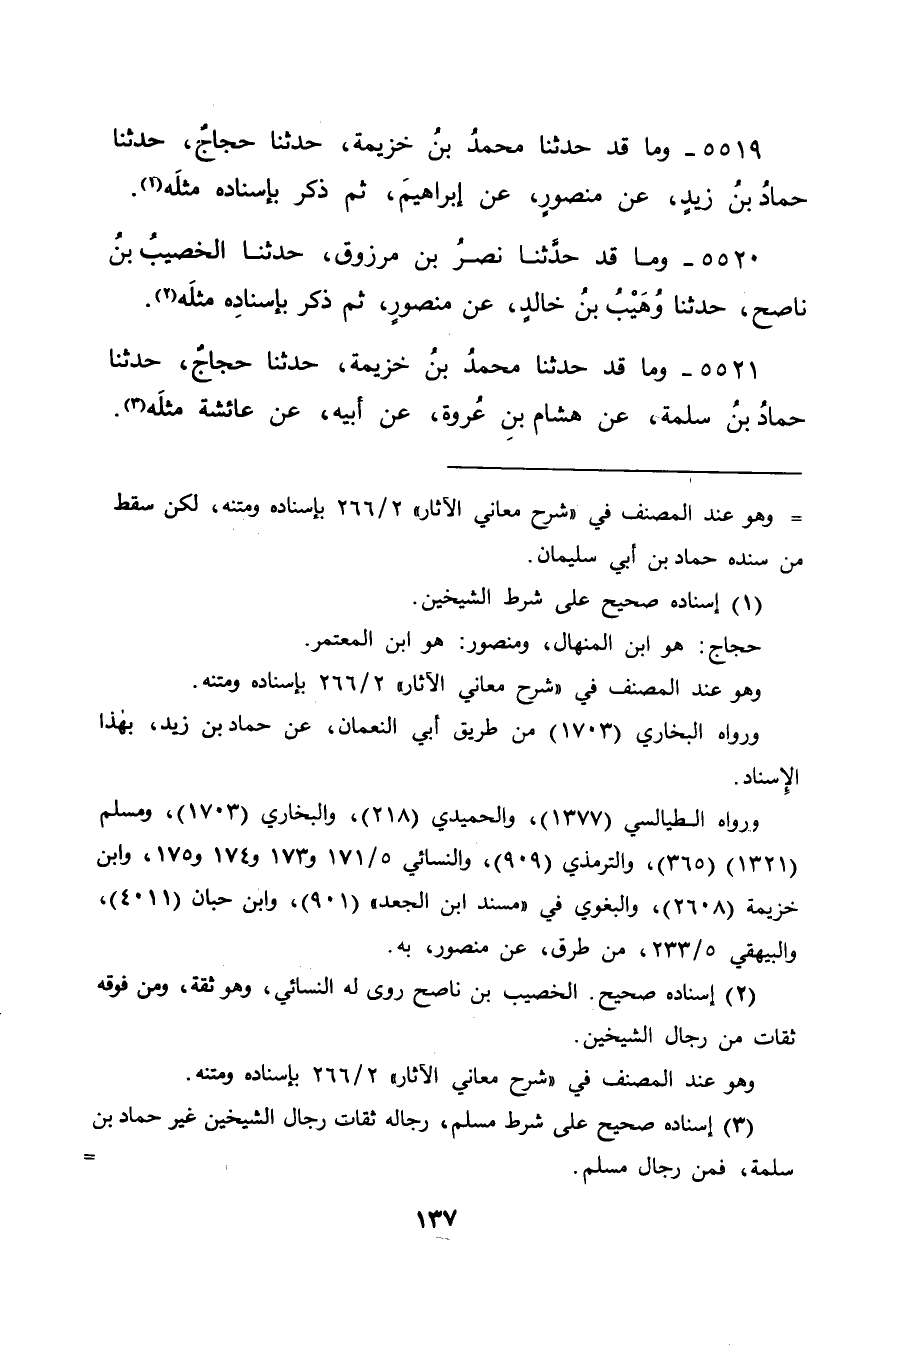 ٥٥١٩ ـ وما قد حدثنا محمدُ بنُ خزيمة، حدثنا حجاجٌ، حدثنا
حمادُ بنُ زيدٍ، عن منصورٍ، عن إبراهيمَ، ثم ذكر بإسناده مثلَه(١).
٥٥٢٠ ـ وما قد حدَّثنا نصرُ بن مرزوق، حدثنا الخصيبُ بنُ
ناصح، حدثنا وُهَيْبُ بنُ خالدٍ، عن منصورٍ، ثم ذكر بإسنادِه مثلَه(٢).
٥٥٢١ ـ وما قد حدثنا محمدُ بنُ خزيمة، حدثنا حجاجٌ، حدثنا
حمادُ بنُ سلمة، عن هشام بنِ عُروة، عن أبيه، عن عائشة مثلَه(٣).
= وهو عند المصنف في «شرح معاني الآثار» ٢٦٦/٢ بإسناده ومتنه، لكن سقط
من سنده حماد بن أبي سليمان.
(١) إسناده صحيح على شرط الشيخين.
حجاج: هو ابن المنهال، ومنصور: هو ابن المعتمر.
وهو عند المصنف في «شرح معاني الآثار» ٢٦٦/٢ بإسناده ومتنه.
ورواه البخاري (١٧٠٣) من طريق أبي النعمان، عن حماد بن زيد، بهٰذا
الإِسناد.
ورواه الطيالسي (١٣٧٧)، والحميدي (٢١٨)، والبخاري (١٧٠٣)، ومسلم
(١٣٢١) (٣٦٥)، والترمذي (٩٠٩)، والنسائي ١٧١/٥ و١٧٣ و١٧٤ و١٧٥، وابن
خزيمة (٢٦٠٨)، والبغوي في «مسند ابن الجعد» (٩٠١)، وابن حبان (٤٠١١)،
والبيهقي ٢٣٣/٥، من طرق، عن منصور، به.
(٢) إسناده صحيح. الخصيب بن ناصح روى له النسائي، وهو ثقة، ومن فوقه
ثقات من رجال الشيخين.
وهو عند المصنف في «شرح معاني الآثار» ٢٦٦/٢ بإسناده ومتنه.
(٣) إسناده صحيح على شرط مسلم، رجاله ثقات رجال الشيخين غير حماد بن
سلمة، فمن رجال مسلم. =
١٣٧